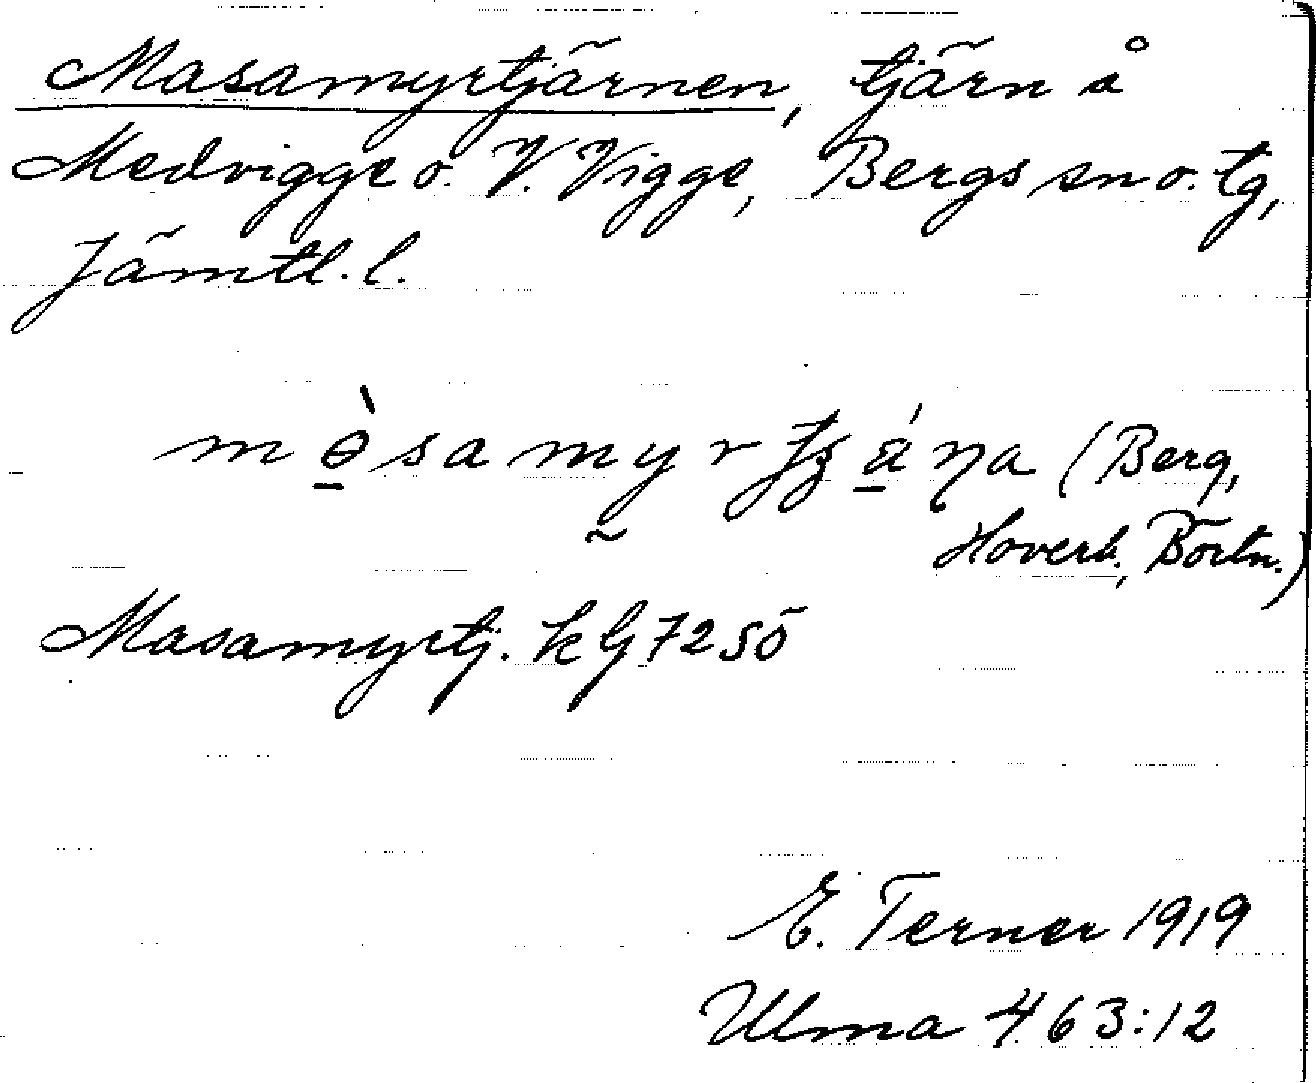 Masamyrtjärnen, tjärn å
Medvigge o. V. Vigge, Bergs sn o. tg,
Jämtl. l.
(Berg,
Hoverb., Börtn.)
Masamyrtj. kG72SÖ
E. Terner 1919
Ulma 463:12